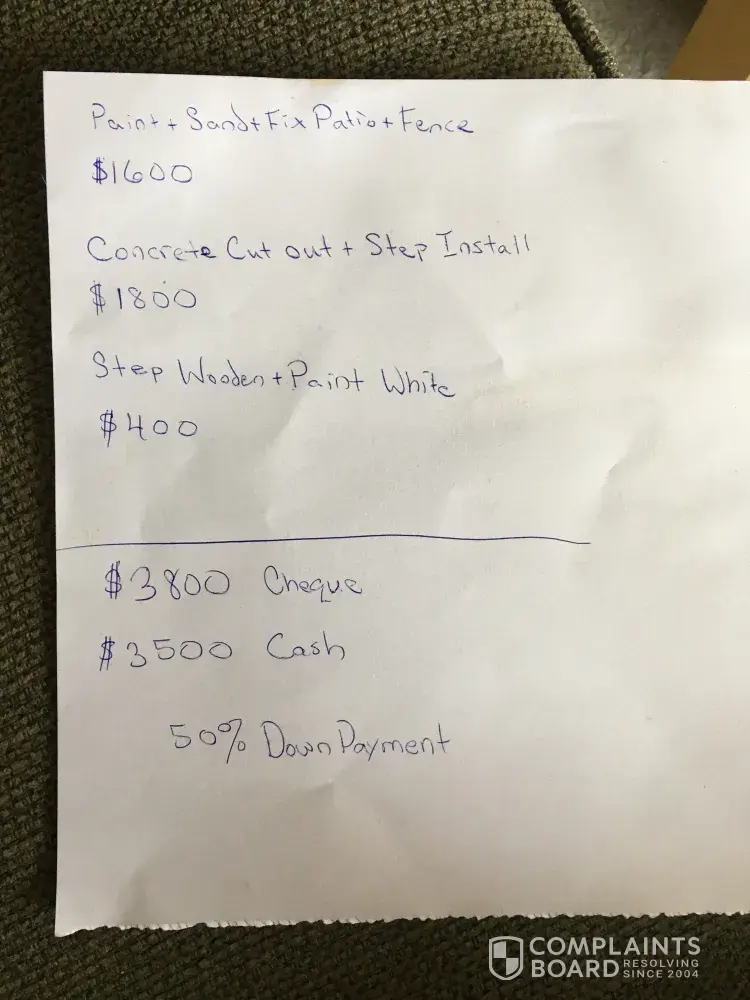 Paint + Sand + Fix Patio + Fence
$1600
Concrete Cut out + Step Install
$1800
Step Wooden + Paint White
$400
$3800 Cheque
$3500 Cash
50% Down Payment
COMPLAINTS
BOARD RESOLVING
SINCE 2004